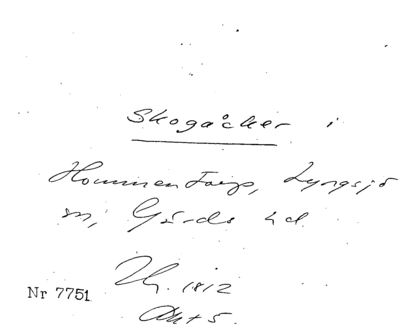 Skogåcker i
Hommentorp, Lyngsjö
sn, Gärds hd
Nr 7751
1812
Akt 5.